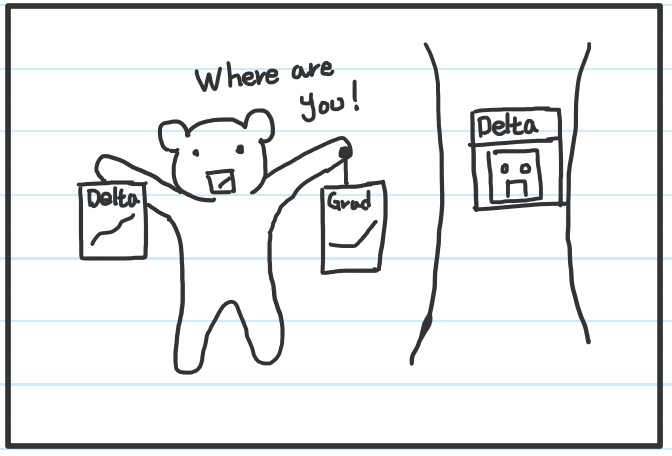 Where are
you!
Delta
Grad
Delta